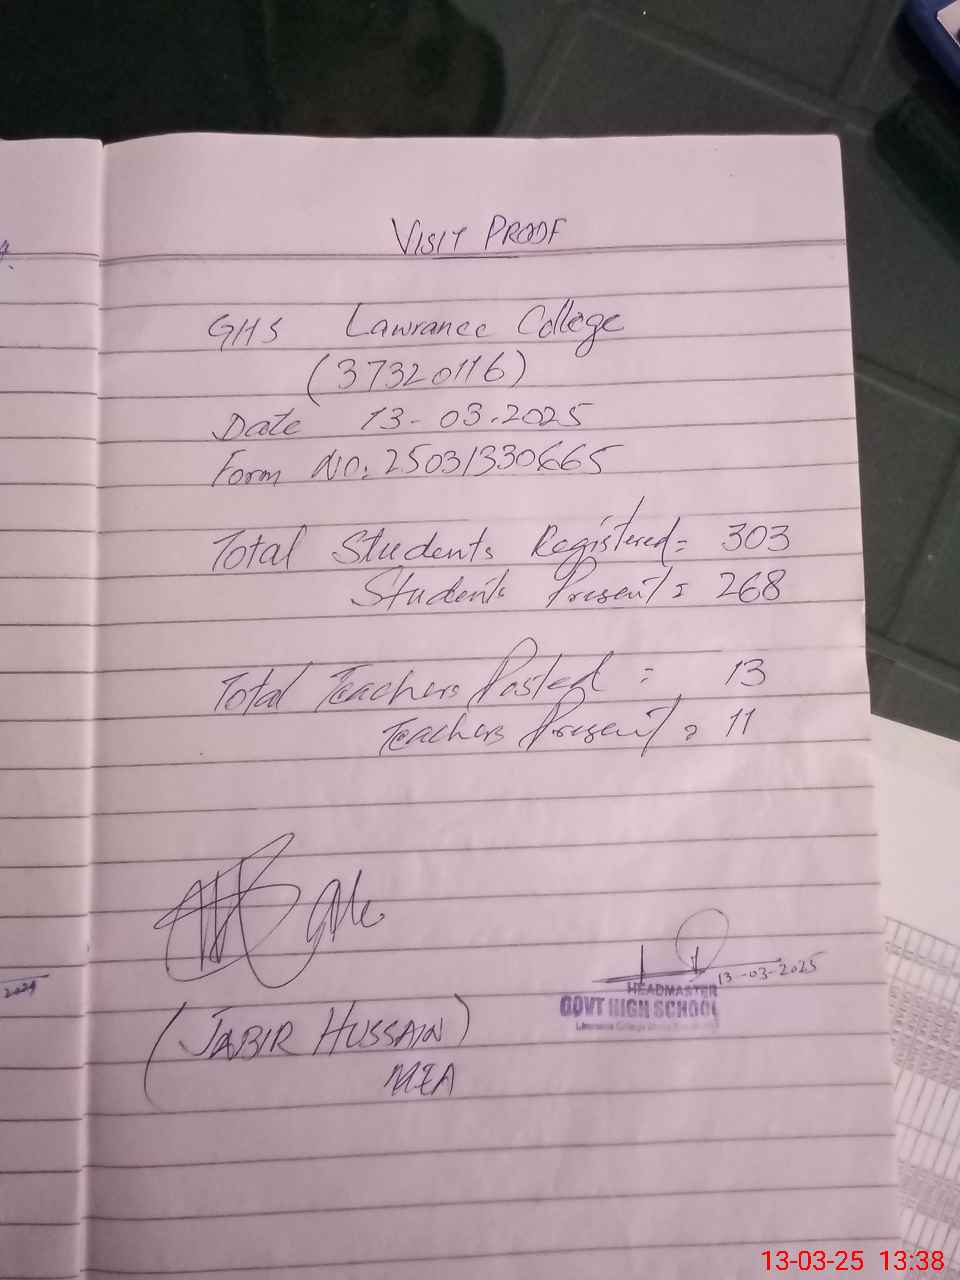 VISIT PROOF
GHS Lawrance College
(37320116)
Date 13-03.2025
Form NO: 25031330665
Total Students Registered = 303
Students Present = 268
Total Teachers Posted = 13
Teachers Present = 11
13-03-2025
HEADMASTER
GOVT HIGH SCHOOL
Lawrance College
(JABIR HUSSAIN)
MEA
13-03-25 13:38